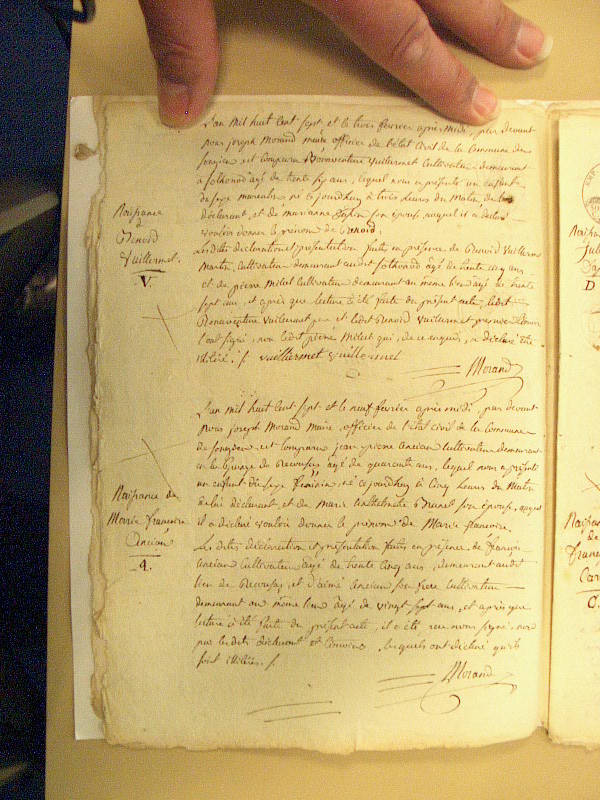 L'an mil huit cent sept et le trois fevrier après midi, par devant
nous joseph Morand maire officier de l'état civil de la Commune de
Songieu est comparu Bonaventure Vuillermet Cultivateur demeurant
à Sothonod âgé de trente six ans, lequel nous a présenté un enfant
du sexe masculin né ce jourdhuy à trois heures du matin de lui
déclarant, et de marianne son épouse auquel il a déclaré
vouloir donner le prénom de Benoid.
Les dites déclaration et présentation faites en présence de Benoid Vuillermet
Martin, Cultivateur demeurant audit Sothonod âgé de trente cinq ans
et de pierre Milet Cultivateur demeurant au même lieu âgé de trente
sept ans, et après que lecture à été faite du présent acte, ledit
Bonaventure Vuillermet pere et ledit Benoid Vuillermet premier témoin
l'ont signé, non ledit pierre Milet qui, de ce enquis, a déclaré être
illiteré. /. vuilliermet vuillermet
Morand
Naissance
de
Benoid
Vuillermet.
V.
L'an mil huit cent sept et le neuf fevrier après midi, par devant
Nous joseph Morand Maire, officier de l'état civil de la Commune
de songieu est comparu jean pierre Ancian Cultivateur demeurant
en la Grange de âgé de quarante ans, lequel nous a présenté
un enfant du sexe féminin, né ce jourdhuy à Cinq heures du Matin
de lui déclarant, et de Marie Brunet son épouse, auquel
il a déclaré vouloir donner le prénom de Marie françoise.
Les dites déclaration et présentation faites en présence de françois
Ancian Cultivateur âgé de trente Cinq ans, demeurant audit
lieu de et d'aimé Ancian son frere Cultivateur
demeurant au même lieu âgé de vingt sept ans, et après que
lecture à été faite du présent acte, il a été par nous signé, non
par lesdits déclarant et témoins, lesquels ont déclaré qu'ils
sont illiterés. /.
Morand
Naissance de
Marie françoise
Ancian
4.
Naissance
D
Naissance
de
C.